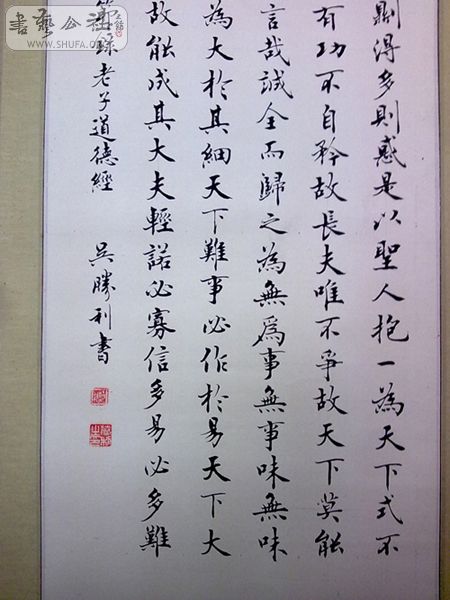 則得多則惑是以聖人抱一為天下式不
有功不自矜故長夫唯不爭故天下莫能
言哉誠全而歸之為無爲事無事味無味
為大於其細天下難事必作於易天下大
故能成其大夫輕諾必寡信多易必多難
節錄老子道德經 吳勝利書
書藝公社
WWW.SHUFA.ORG